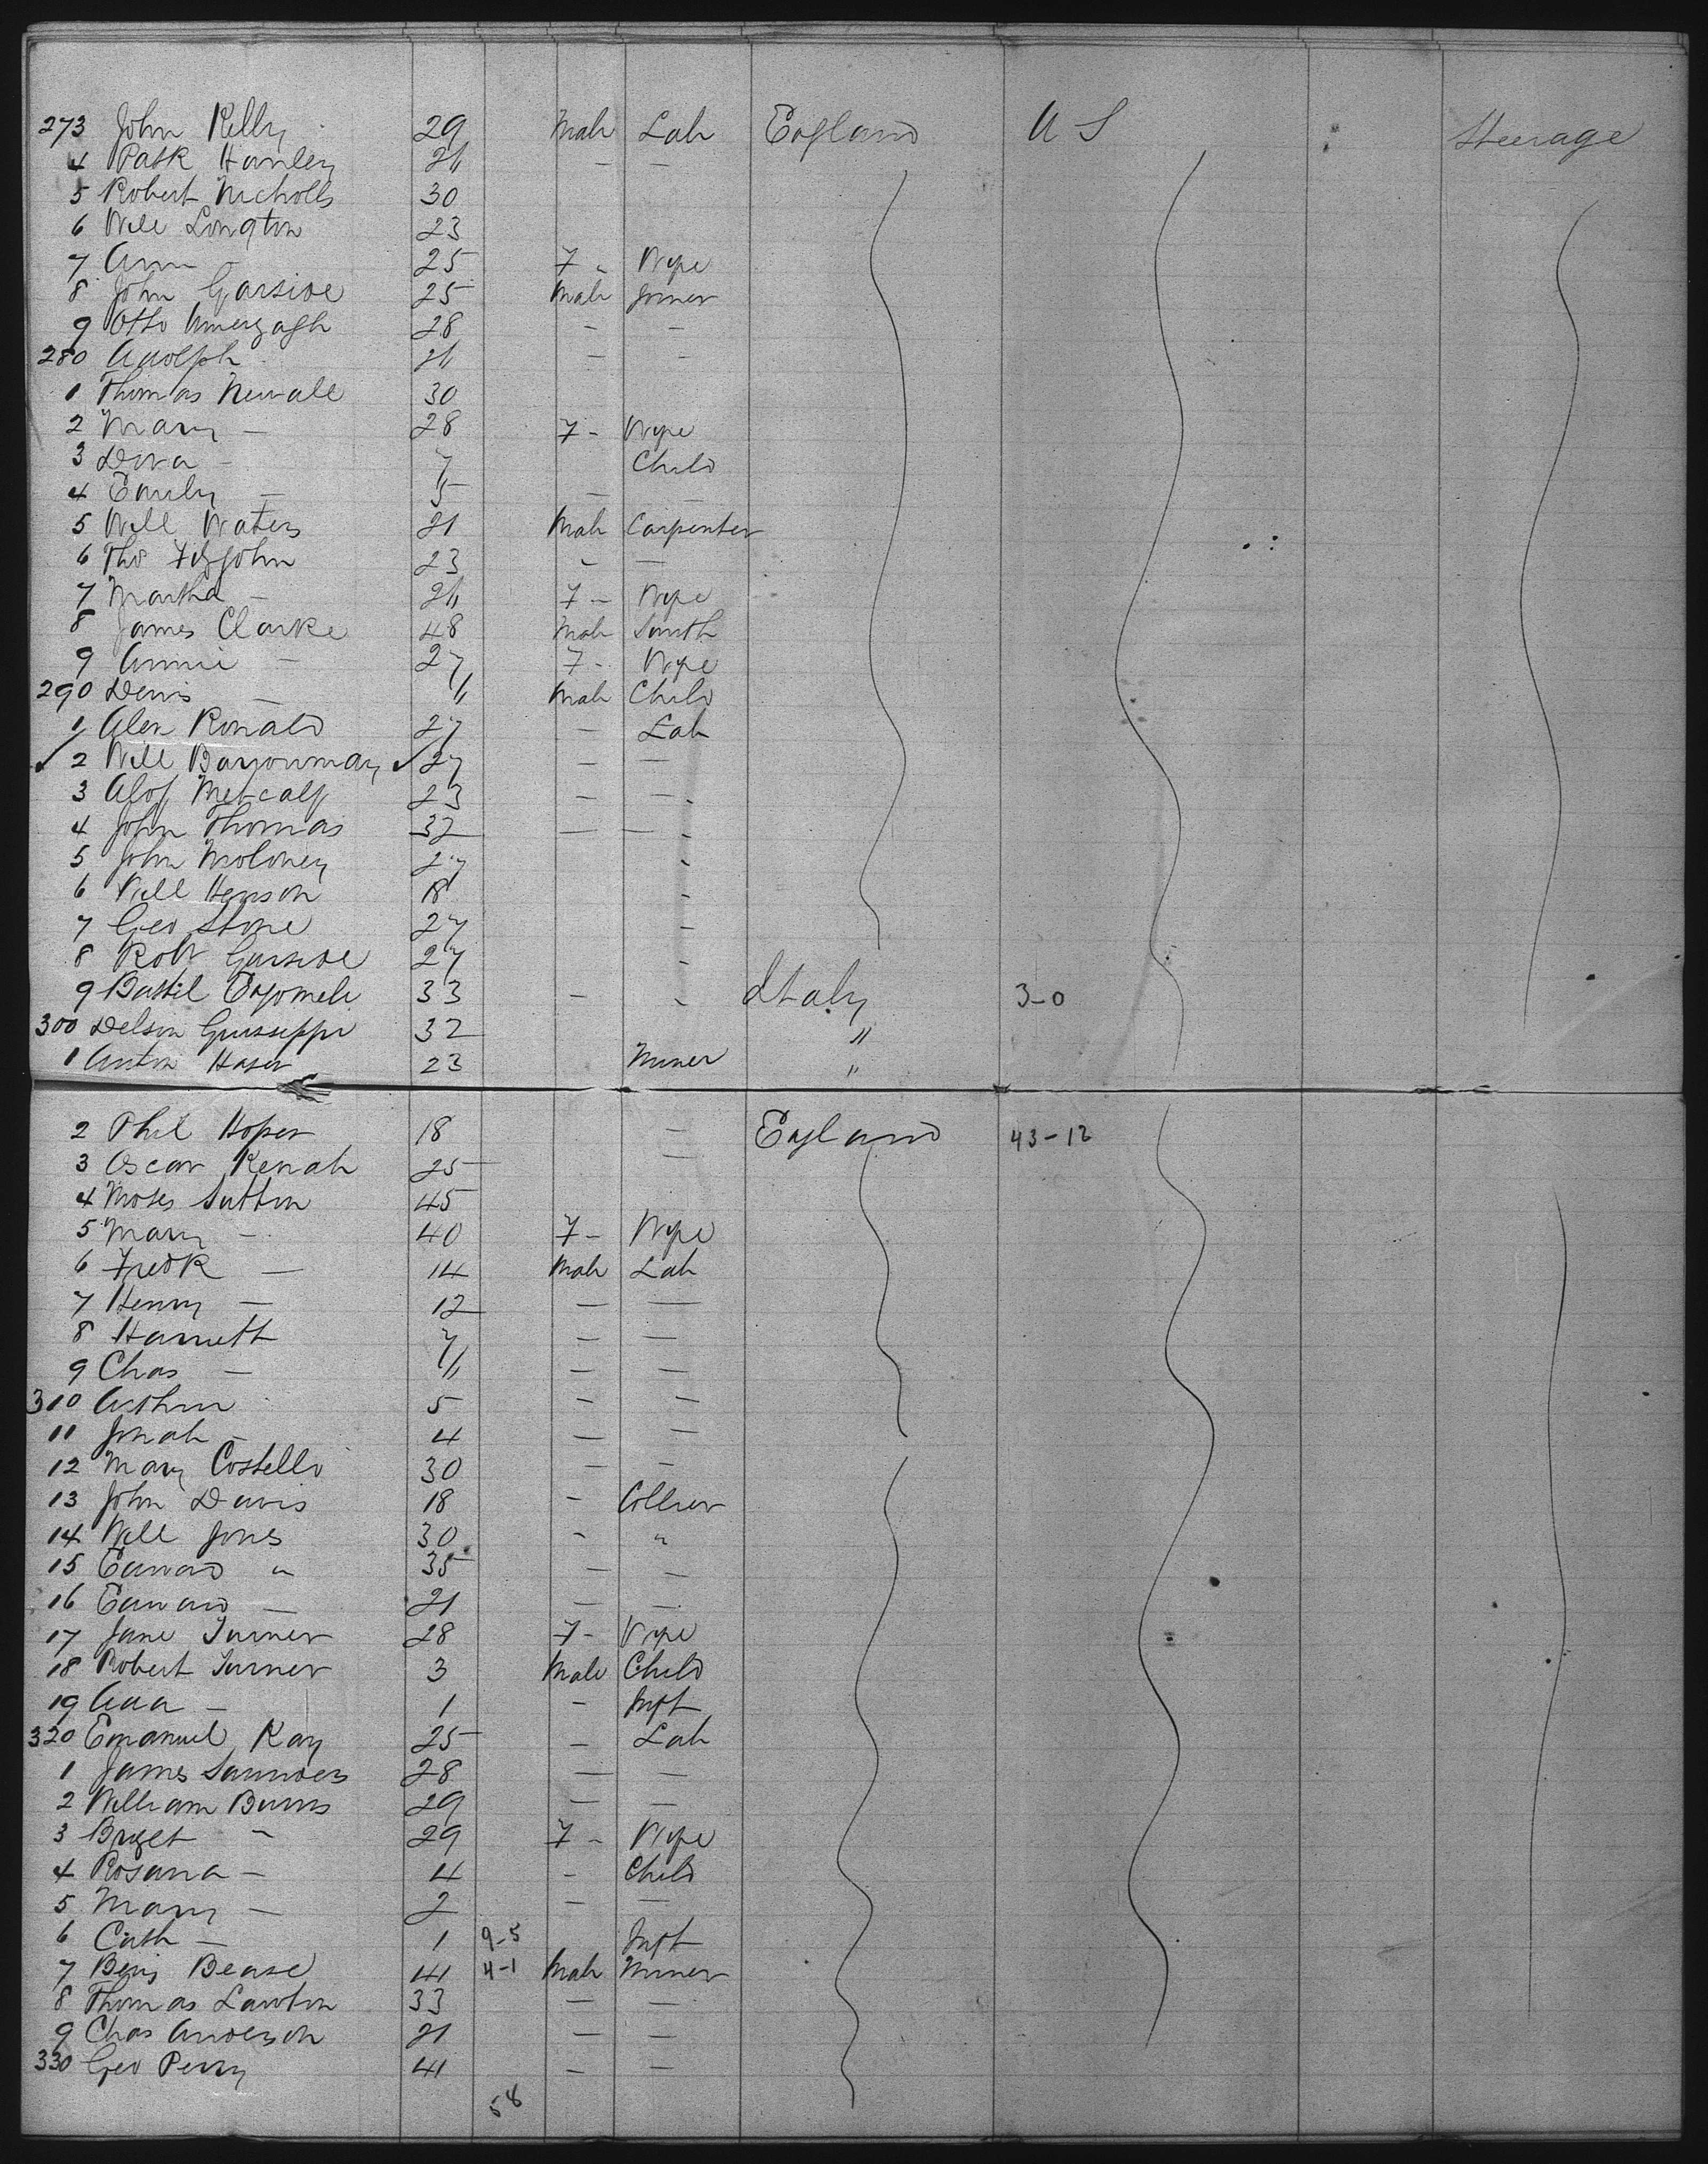 273 John Kelly 29 Male Lab England U S Steerage
4 Patk Hanley 26 — —
5 Robert Nicholls 30
6 Will Longton 23
7 Ann - 25 F " Wife
8 John Garside 25 Male Joiner
9 Otto 28 - -
280 Adolph 26 - -
1 Thomas Newall 30
2 Mary - 28 F - Wife
3 Dora - 7 Child
4 Emily - 5 - -
5 Will Waters 21 Male Carpenter
6 Tho Fitzjohn 23 - —
7 Martha - 26 F - Wife
8 James Clarke 48 Male Smith
9 Annie - 27 F - Wife
290 Denis — 6 Male Child
1 Alex Ronald 27 - Lab
2 Will Barrowman 27 - —
3 Metcalf 23 - -
4 John Thomas 32 — —
5 John Moloney 27 "
6 Will Henson 18 -
7 Geo Stone 27 -
8 Robt Garside 27 -
9 Battil 33 - " Italy 3-0
300 Delson Guisseppi 32 "
1 Anton 23 Miner "
2 Phil 18 — England 43-12
3 Oscar 25 —
4 Moses Sutton 45
5 Mary - 40 F - Wife
6 Fredk — 14 Male Lab
7 Henry — 12 — —
8 Harriett 7 — —
9 Chas — 6 — —
310 Arthur 5 - —
11 Jonah - 4 — —
12 Mary Costello 30 - -
13 John Davis 18 - Collier
14 Will Jones 30 - "
15 Edward " 35 — —
16 Edward — 21 — —
17 Jane Turner 28 F - Wife
18 Robert Turner 3 Male Child
19 Ada - 1 - Inft
320 Emanuel Kay 25 - Lab
1 James Saunders 28 — —
2 William Burns 29 — —
3 Briget - 29 F - Wife
4 Rosana - 4 - Child
5 Mary — 2 — —
6 Cath — 1 9-5 Inft
7 Benj Bease 41 4-1 Male Miner
8 Thomas Lawton 33 — —
9 Chas Anderson 21 — —
330 Geo Perry 41 — —
58